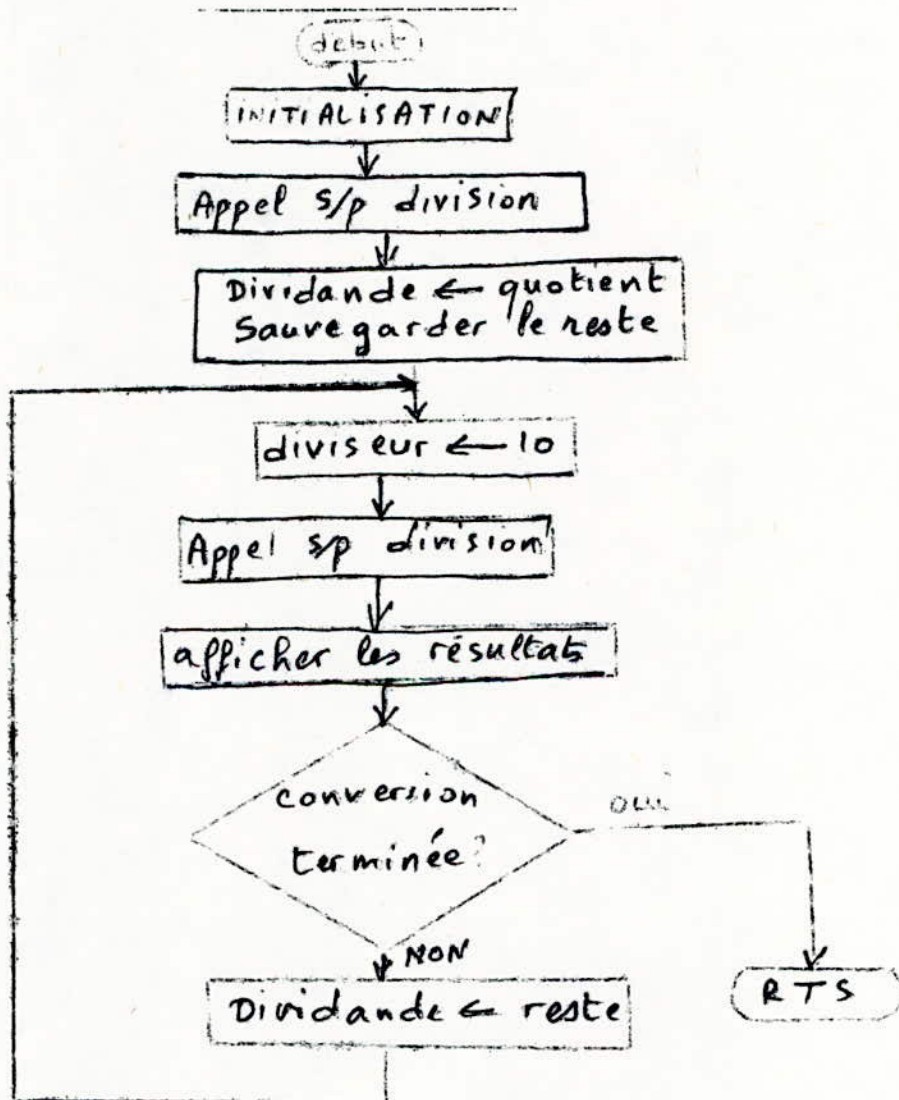 début
INITIALISATION
Appel s/p division
Dividande ← quotient
Sauvegarder le reste
diviseur ← 10
Appel s/p division
afficher les résultats
conversion
terminée?
oui
NON
Dividande ← reste
RTS